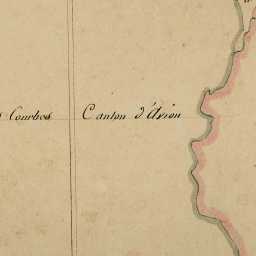 Courbes Canton d'Arion